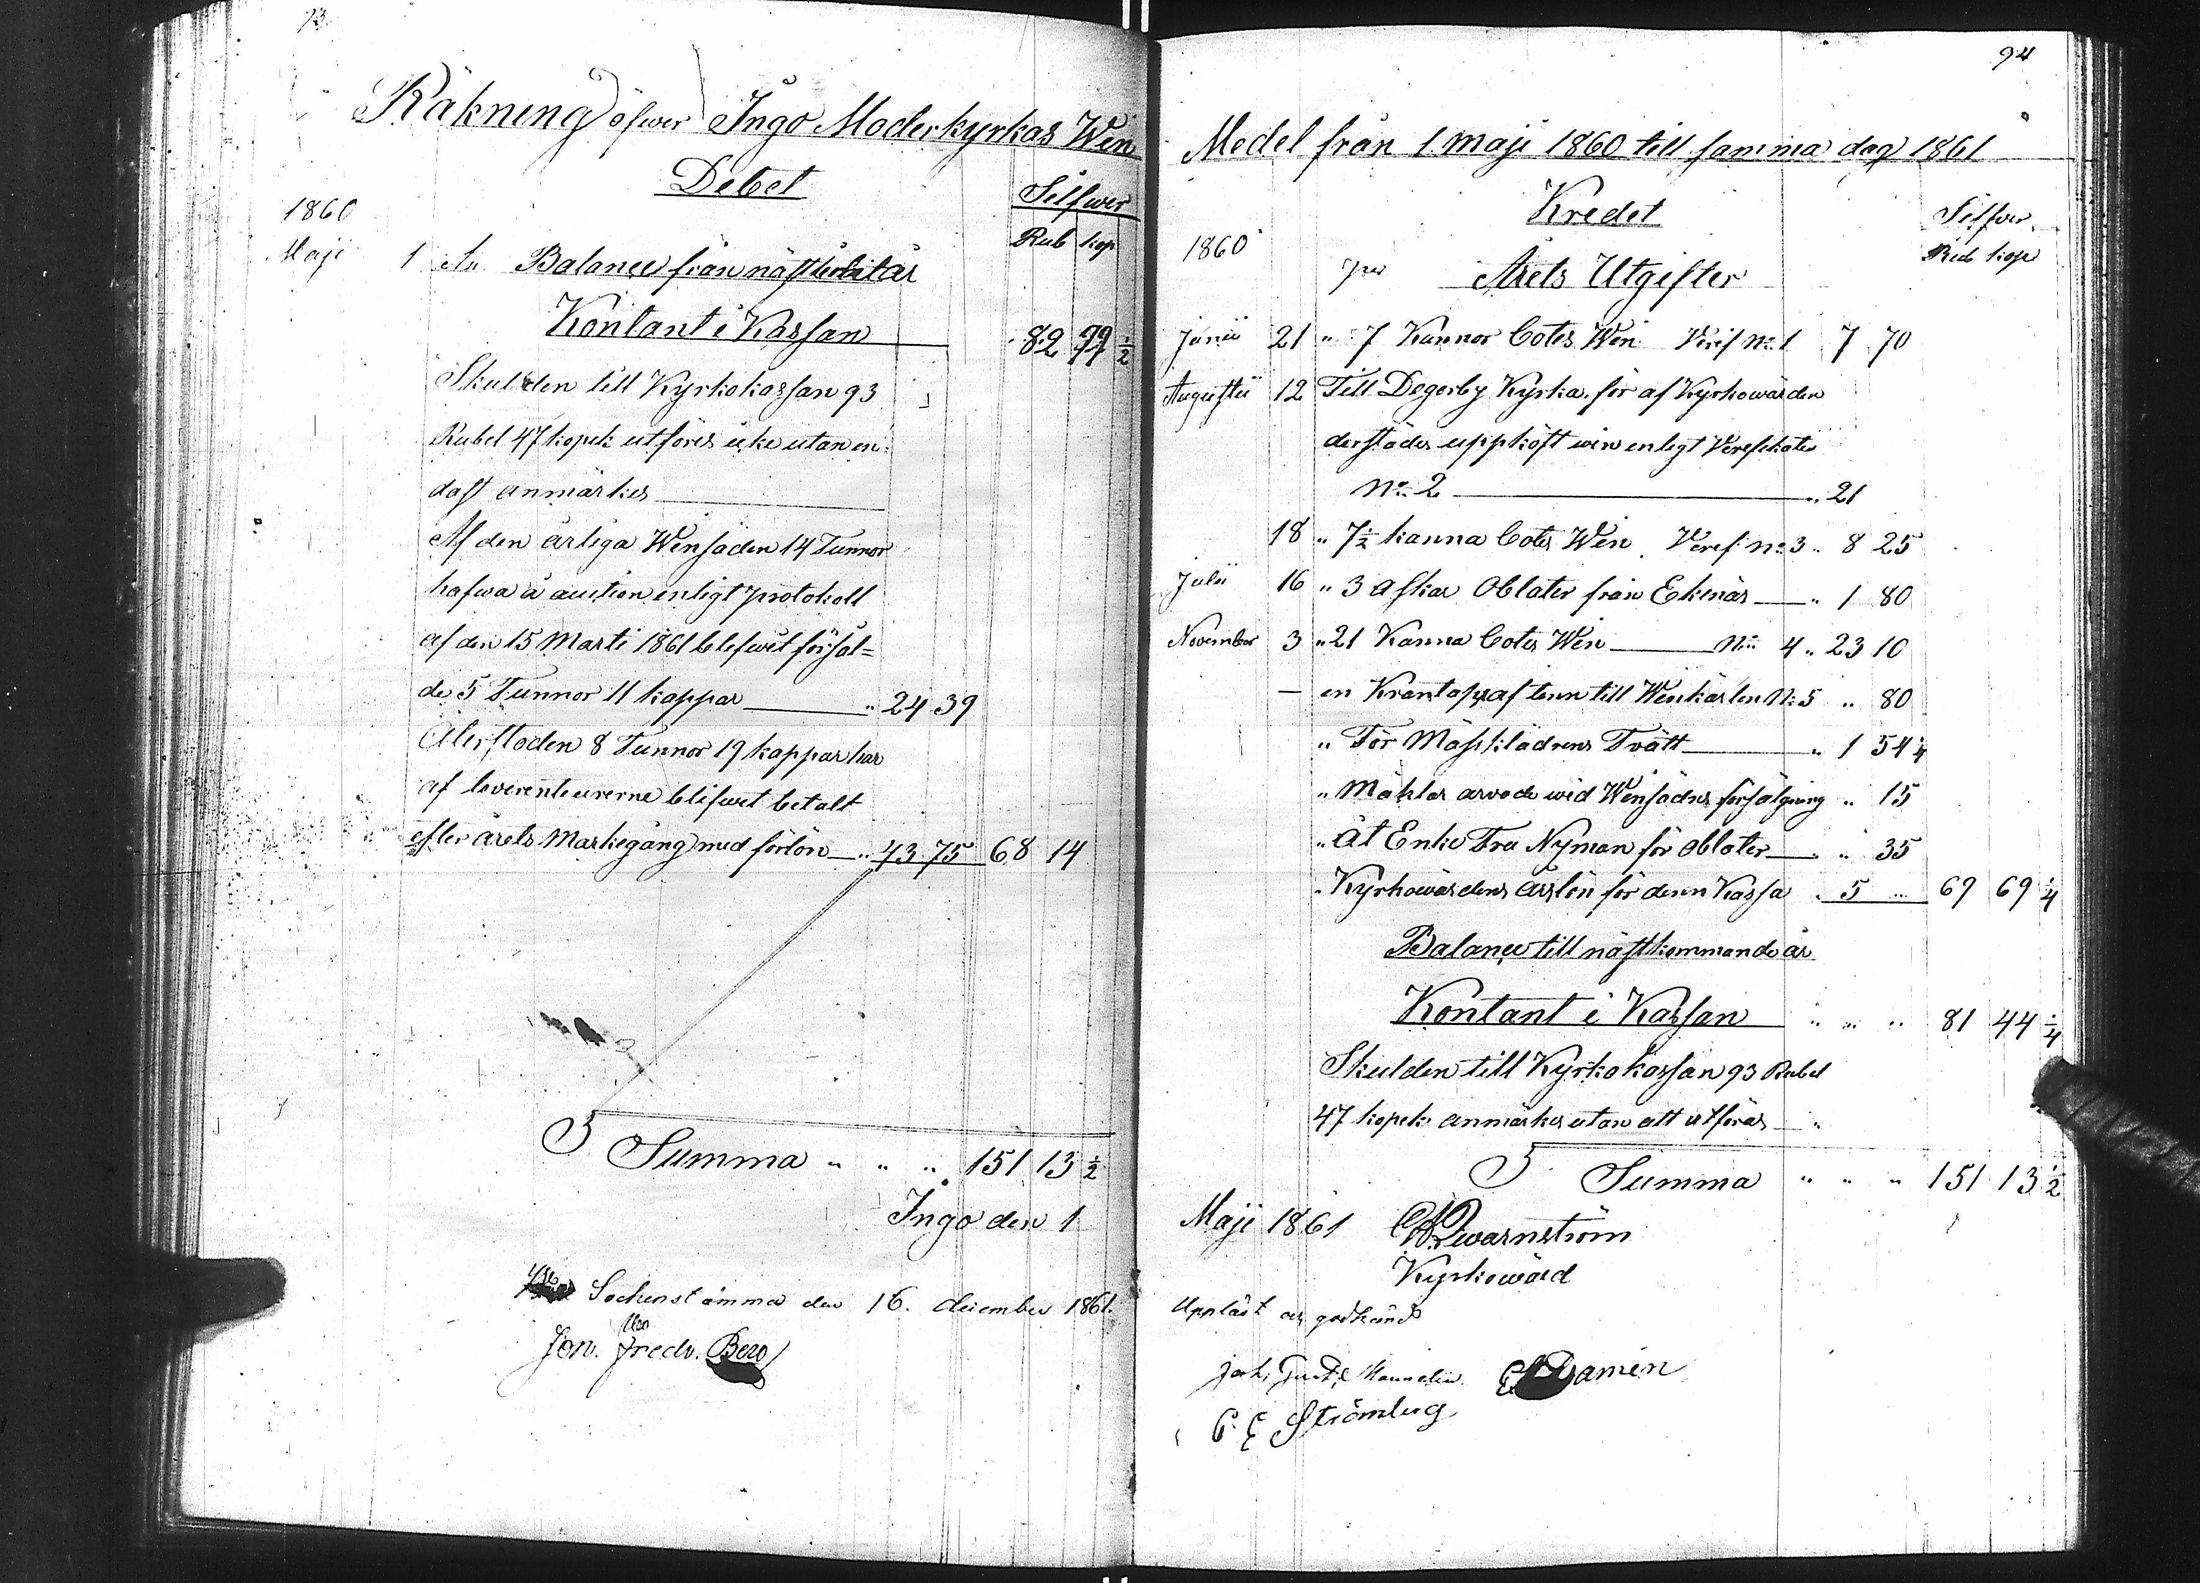 93.
Räkning öfwer Ingo Moderkyrkas Win
Debet
Silfwer
1860
Rub kop
Maji 1 An Balance från nästledit år
Kontant i Kassan 82 99 1/2
Skulden till Kyrkokassan 93
Rubel 47 kopek utföres icke utan en-
dast anmärkes
Af den årliga Winsäden 14 Tunnor
hafwa å auction enligt protokoll
af den 15 Marti 1861 blifwit försål=
de 5 Tunnor 11 kappar " 24 39
Återstoden 8 Tunnor 19 kappar har
af leverenteurerne blifwet betalt
efter årets Markegång med förlön " 43 75 68 14
S Summa " " " 151 13 1/2
Ingo den 1
Sockenstämma den 16. december 1861.
Jon. Fredr. Berg
94
Medel från 1 maji 1860 till samma dag 1861
Kredet
Silfver
1860
Rub kop
per Årets Utgifter
Junii 21 " 7 Kannor Cotes Win Verif No 1 7 70
Augustii 12 Till Degerby Kyrka, för af Kyrkowärden
derstädes uppköft win enligt Verefikate
No 2 " 21
18 " 7 1/2 kanna Cotes Win Veref: No 3 " 8 25
Julii 16 " 3 askar Oblater från Ekenäs " 1 80
November 3 " 21 Kanna Cotes Win No 4 " 23 10
— en Krantapp af tenn till Winkärlen No 5 " 80
" För Mässklädrens Tvätt " 1 54 1/4
" Mäklar arvode wid Winsädns försälgning " 15
" Åt Enke Fru Nyman för Oblater " 35
" Kyrkowärdens årslön för denn Kassa " 5 " 69 69 1/4
Balance till nästkommande år
Kontant i Kassan " " " 81 44 1/4
Skulden till Kyrkokassan 93 Rubel
47 kopek anmärkes utan att utföras "
S Summa " " " 151 13 1/2
Maji 1861 Qwarnström
Kyrkowärd
Uppläst och godkänd
Joh. Gust. Mannelin
C E Strömberg